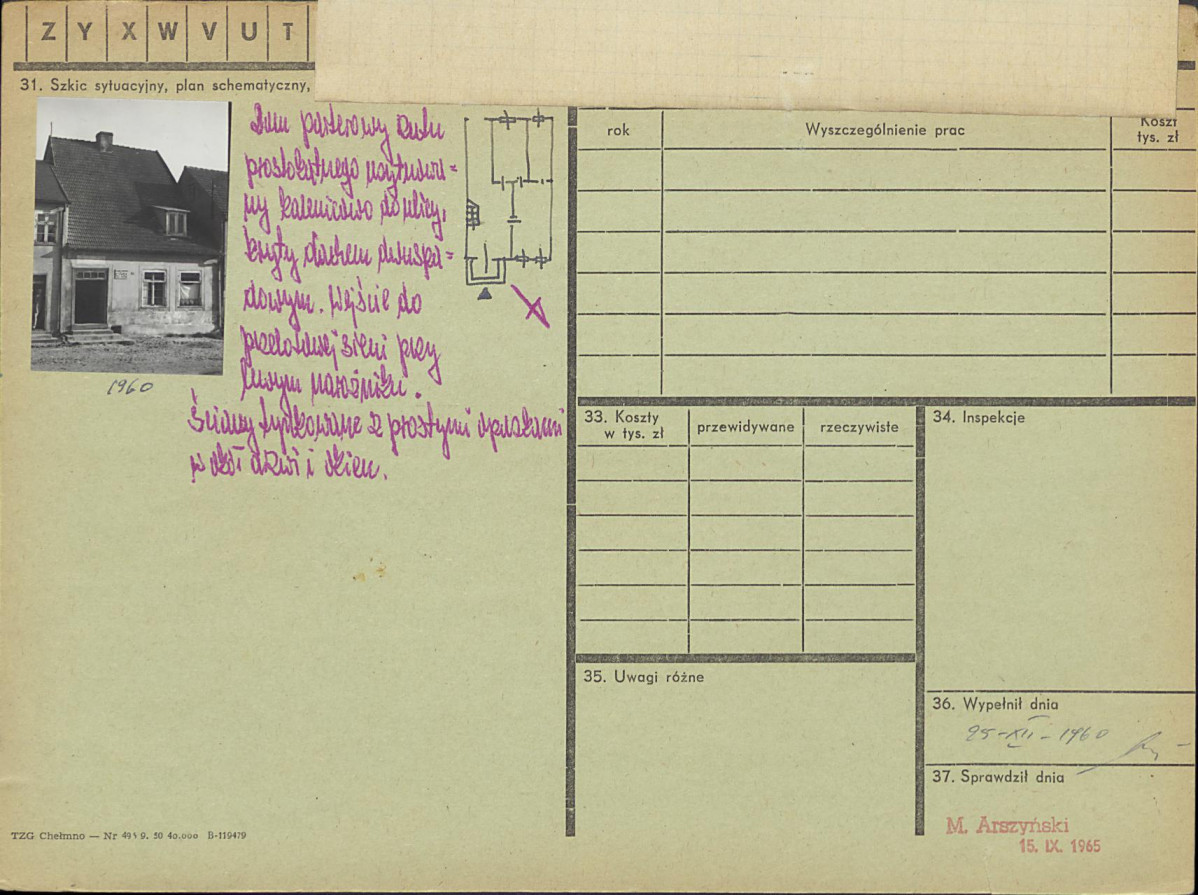 Z Y X W V U T
31. Szkic sytuacyjny, plan schematyczny,
Dom parterowy rzutu
prostokątnego usytuowa=
ny kalenicowo do ulicy,
kryty dachem dwuspa=
dowym. Wejście do
przelotowej sieni przy
lewym narożniku.
Ściany tynkowane z prostymi opaskami
wokół drzwi i okien.
1960
rok
Wyszczególnienie prac
Koszt
tys. zł
33. Koszty
w tys. zł
przewidywane
rzeczywiste
34. Inspekcje
35. Uwagi różne
36. Wypełnił dnia
25-XII-1960
37. Sprawdził dnia
M. Arszyński
15. IX. 1965
TZG Chełmno — Nr 495 9. 50 40.000 B-119479